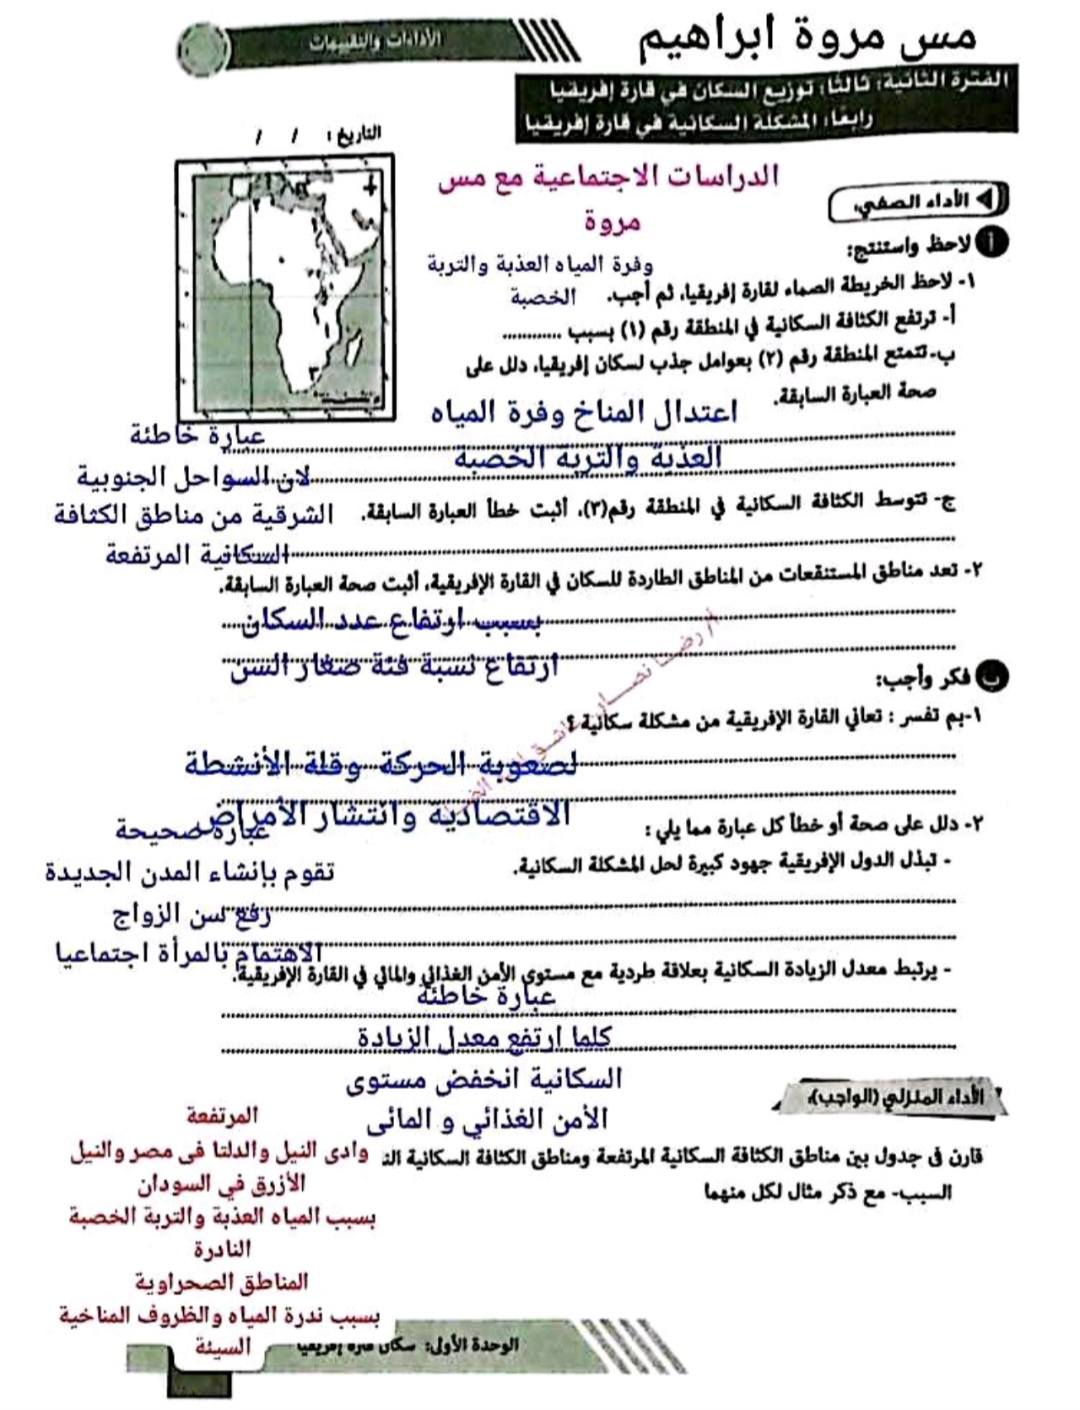 مس مروة ابراهيم
الأداءات والتقييمات
الفترة الثانية: ثالثًا: توزيع السكان في قارة إفريقيا
رابعًا: المشكلة السكانية في قارة إفريقيا
التاريخ: / /
الدراسات الاجتماعية مع مس
مروة
الأداء الصفي:
أ لاحظ واستنتج:
وفرة المياه العذبة والتربة
الخصبة
١- لاحظ الخريطة الصماء لقارة إفريقيا، ثم أجب.
أ- ترتفع الكثافة السكانية في المنطقة رقم (١) بسبب ............
ب- تتمتع المنطقة رقم (٢) بعوامل جذب لسكان إفريقيا، دلل على
صحة العبارة السابقة.
٣
اعتدال المناخ وفرة المياه
العذبة والتربة الخصبة
ج- تتوسط الكثافة السكانية في المنطقة رقم(٣)، أثبت خطأ العبارة السابقة.
عبارة خاطئة
لان السواحل الجنوبية
الشرقية من مناطق الكثافة
السكانية المرتفعة
٢- تعد مناطق المستنقعات من المناطق الطاردة للسكان في القارة الإفريقية، أثبت صحة العبارة السابقة.
بسبب ارتفاع عدد السكان
ارتفاع نسبة فئة صغار السن
ب فكر وأجب:
١-بم تفسر : تعاني القارة الإفريقية من مشكلة سكانية ؟
لصعوبة الحركة وقلة الأنشطة
الاقتصادية وانتشار الأمراض
٢- دلل على صحة أو خطأ كل عبارة مما يلي :
- تبذل الدول الإفريقية جهود كبيرة لحل المشكلة السكانية.
عبارة صحيحة
تقوم بإنشاء المدن الجديدة
رفع سن الزواج
الاهتمام بالمرأة اجتماعيا
- يرتبط معدل الزيادة السكانية بعلاقة طردية مع مستوى الأمن الغذائي والمائي في القارة الإفريقية.
عبارة خاطئة
كلما ارتفع معدل الزيادة
السكانية انخفض مستوى
الأمن الغذائي و المائى
الأداء المنزلي (الواجب):
قارن في جدول بين مناطق الكثافة السكانية المرتفعة ومناطق الكثافة السكانية
السبب- مع ذكر مثال لكل منهما
المرتفعة
وادى النيل والدلتا فى مصر والنيل
الأزرق في السودان
بسبب المياه العذبة والتربة الخصبة
النادرة
المناطق الصحراوية
بسبب ندرة المياه والظروف المناخية
السيئة
الوحدة الأولى: سكان قارة إفريقيا